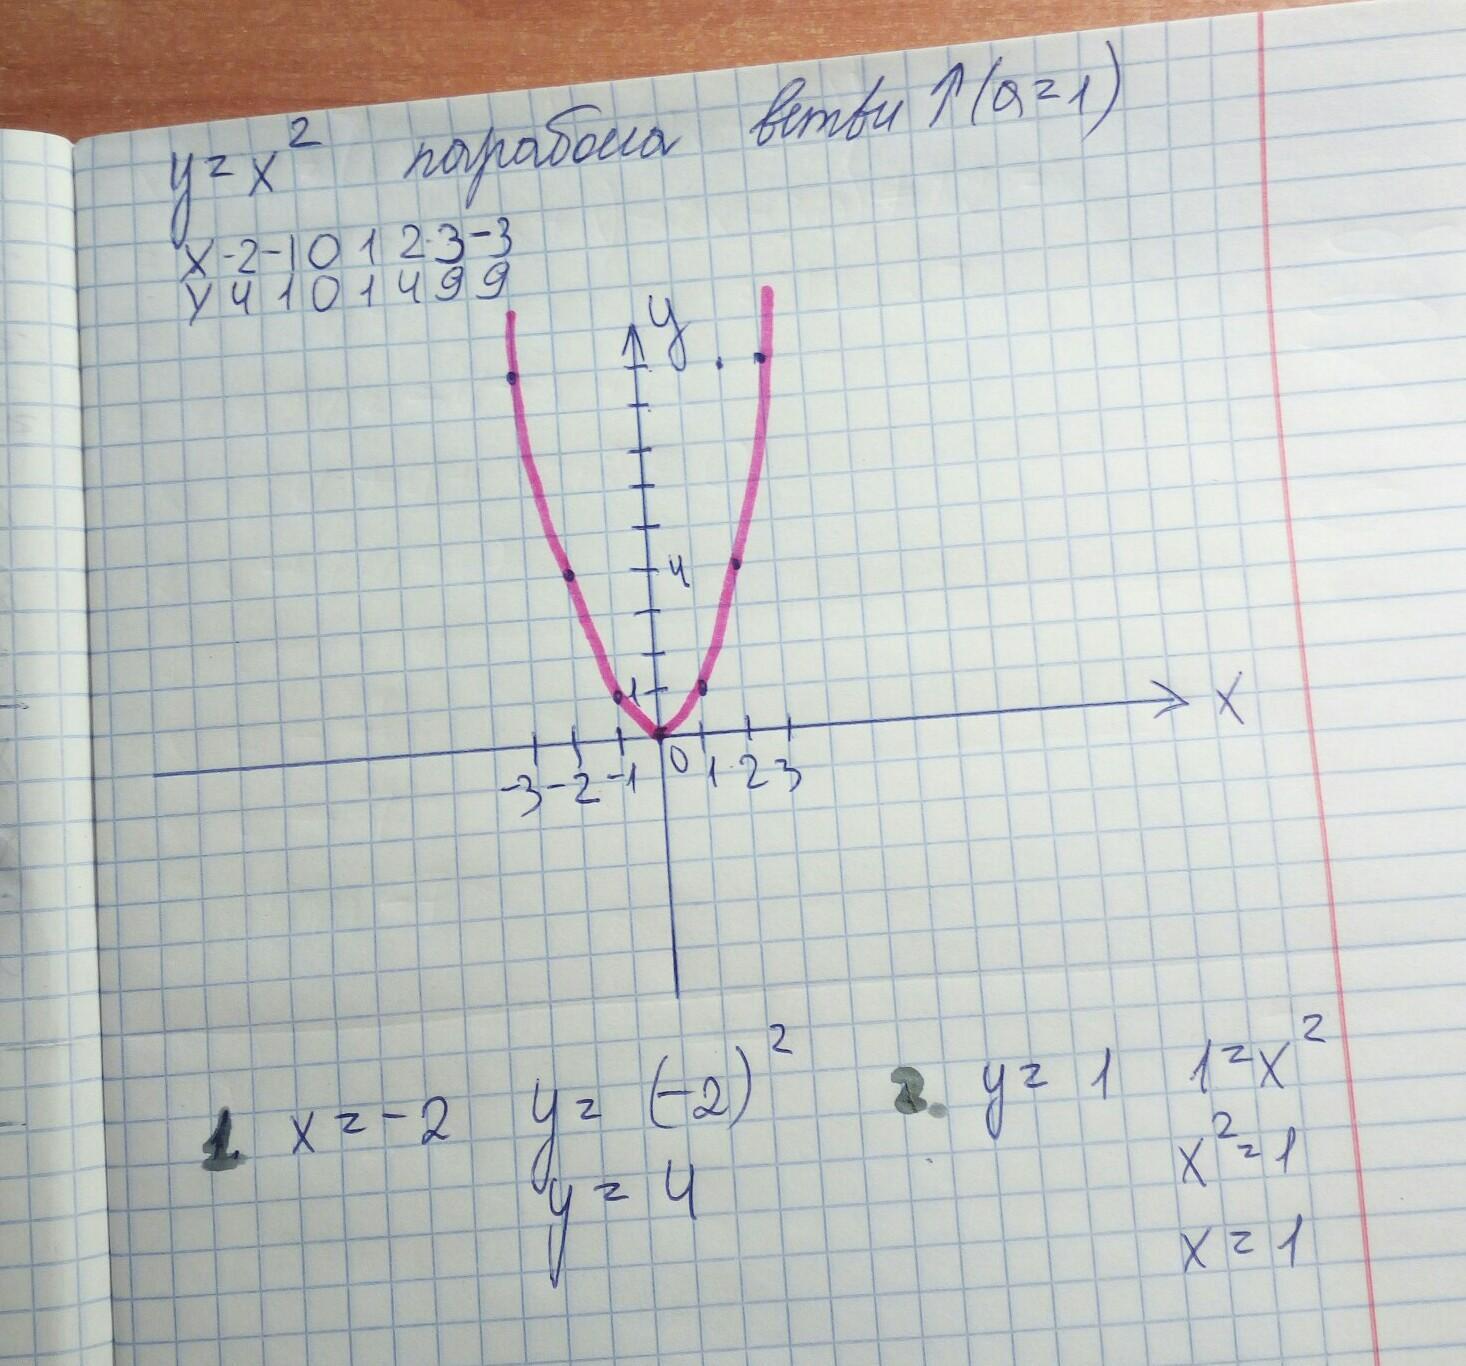 y=x² парабола ветви ↑(a=1)
x -2 -1 0 1 2 3 -3
y 4 1 0 1 4 9 9
y
4
1
x
-3 -2 -1 0 1 2 3
1. x=-2 y=(-2)² 2. y=1 1=x²
y=4 x²=1
x=1